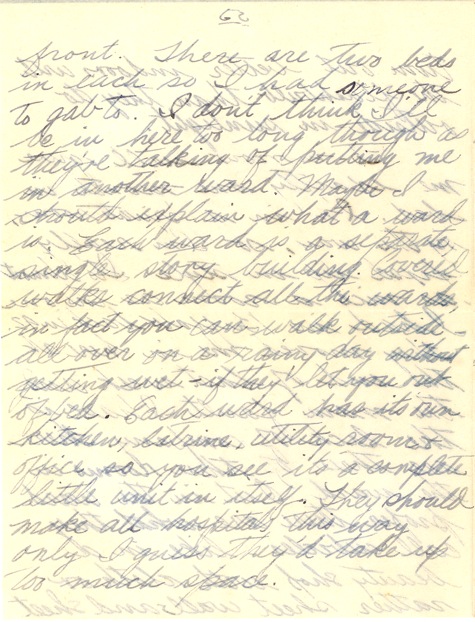 62
front. There are two beds
in each so I had someone
to gab to. I dont think I'll
be in here too long though as
they're talking of putting me
in another ward. Maybe I
should explain what a ward
is. Each ward is a separate,
single story building. Covered
walks connect all the wards
in fact you can walk outside
all over on a rainy day without
getting wet - if they'd let you out
of bed. Each ward has its own
kitchen, latrine, utility room &
office so you see it's a complete
little unit in itself. They should
make all hospitals this way
only I guess they'd take up
too much space.